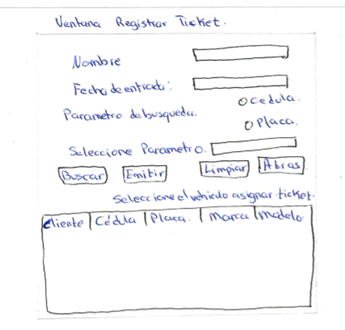 Ventana Registrar Ticket.
Nombre
Fecha de entrada:
Parametro de busqueda. Cedula.
Placa.
Seleccione Parametro.
Buscar Emitir Limpiar Atras
Seleccione el vehiculo asignar ticket.
Cliente Cédula Placa. Marca Modelo.